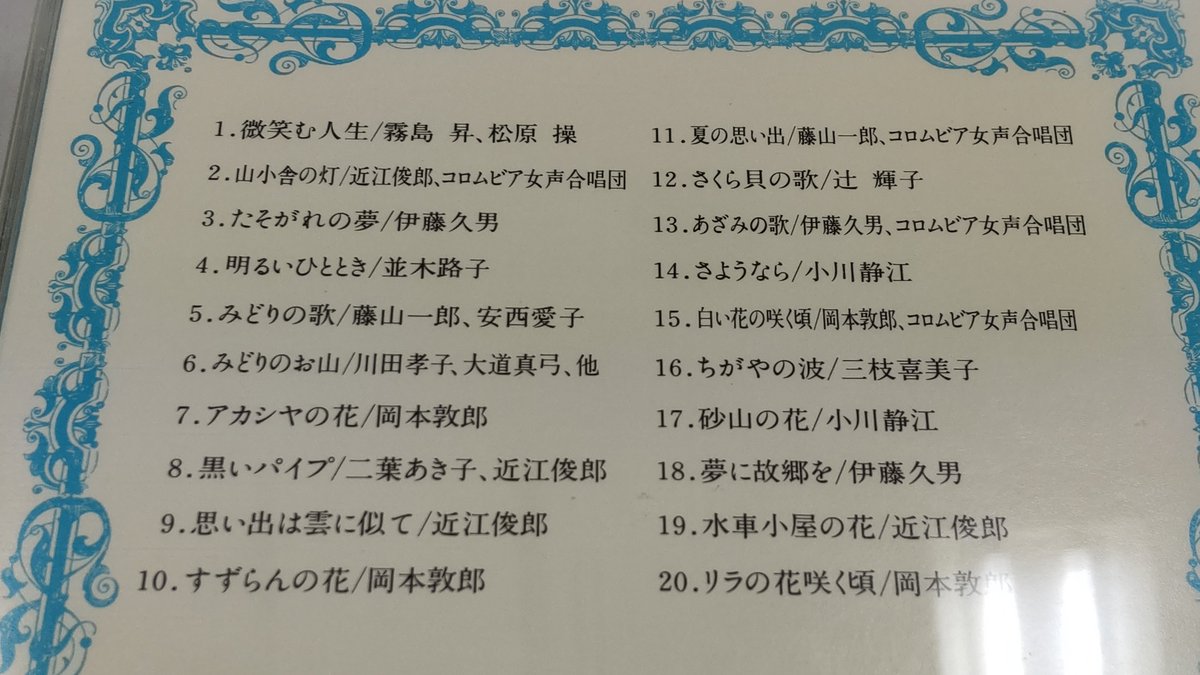 1.微笑む人生/霧島 昇、松原 操
2.山小舎の灯/近江俊郎、コロムビア女声合唱団
3.たそがれの夢/伊藤久男
4.明るいひととき/並木路子
5.みどりの歌/藤山一郎、安西愛子
6.みどりのお山/川田孝子、大道真弓、他
7.アカシヤの花/岡本敦郎
8.黒いパイプ/二葉あき子、近江俊郎
9.思い出は雲に似て/近江俊郎
10.すずらんの花/岡本敦郎
11.夏の思い出/藤山一郎、コロムビア女声合唱団
12.さくら貝の歌/辻 輝子
13.あざみの歌/伊藤久男、コロムビア女声合唱団
14.さようなら/小川静江
15.白い花の咲く頃/岡本敦郎、コロムビア女声合唱団
16.ちがやの波/三枝喜美子
17.砂山の花/小川静江
18.夢に故郷を/伊藤久男
19.水車小屋の花/近江俊郎
20.リラの花咲く頃/岡本敦郎